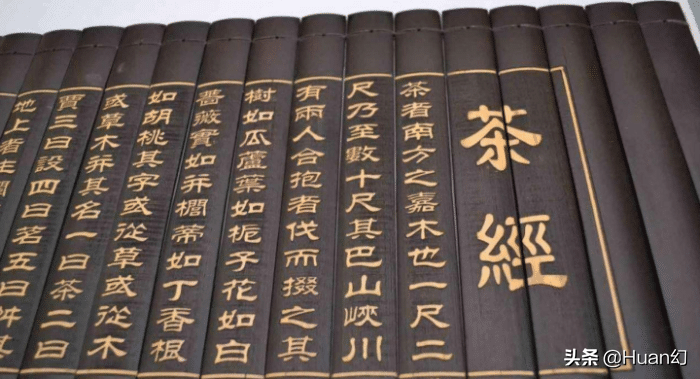 茶經
茶者南方之嘉木也一尺二
尺乃至數十尺其巴山峽川
有兩人合抱者伐而掇之其
樹如瓜蘆葉如梔子花如白
薔薇實如并櫚蒂如丁香根
如胡桃其字或從草或從木
或草木并其名一曰茶二曰
賈三曰設四曰茗五曰舛其
地上者
头条 @Huan幻